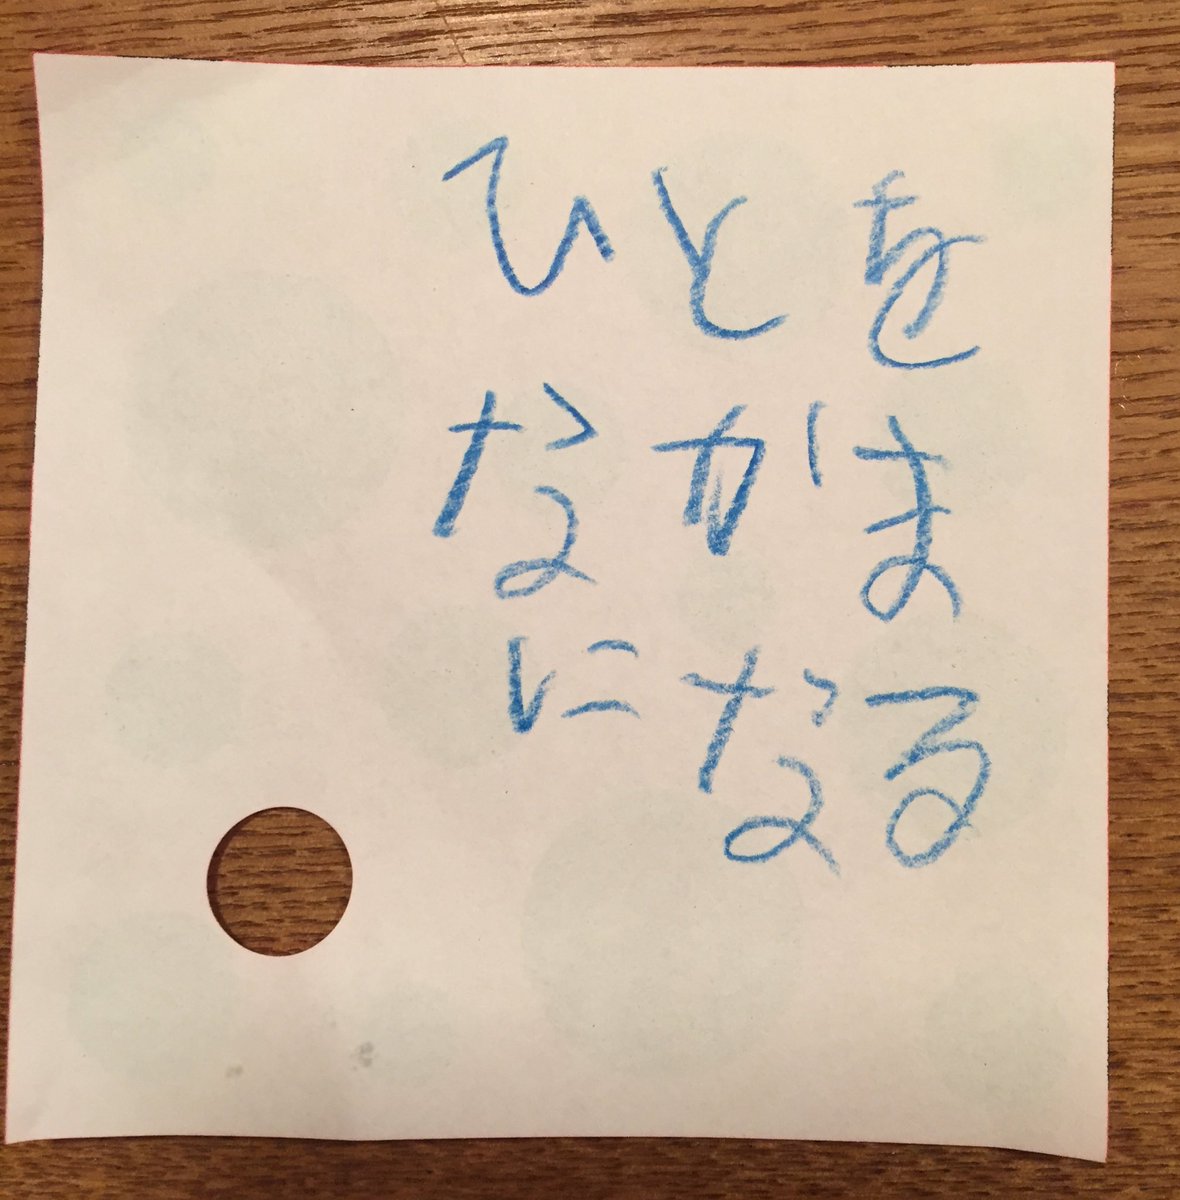 ひとを
なかま
になる